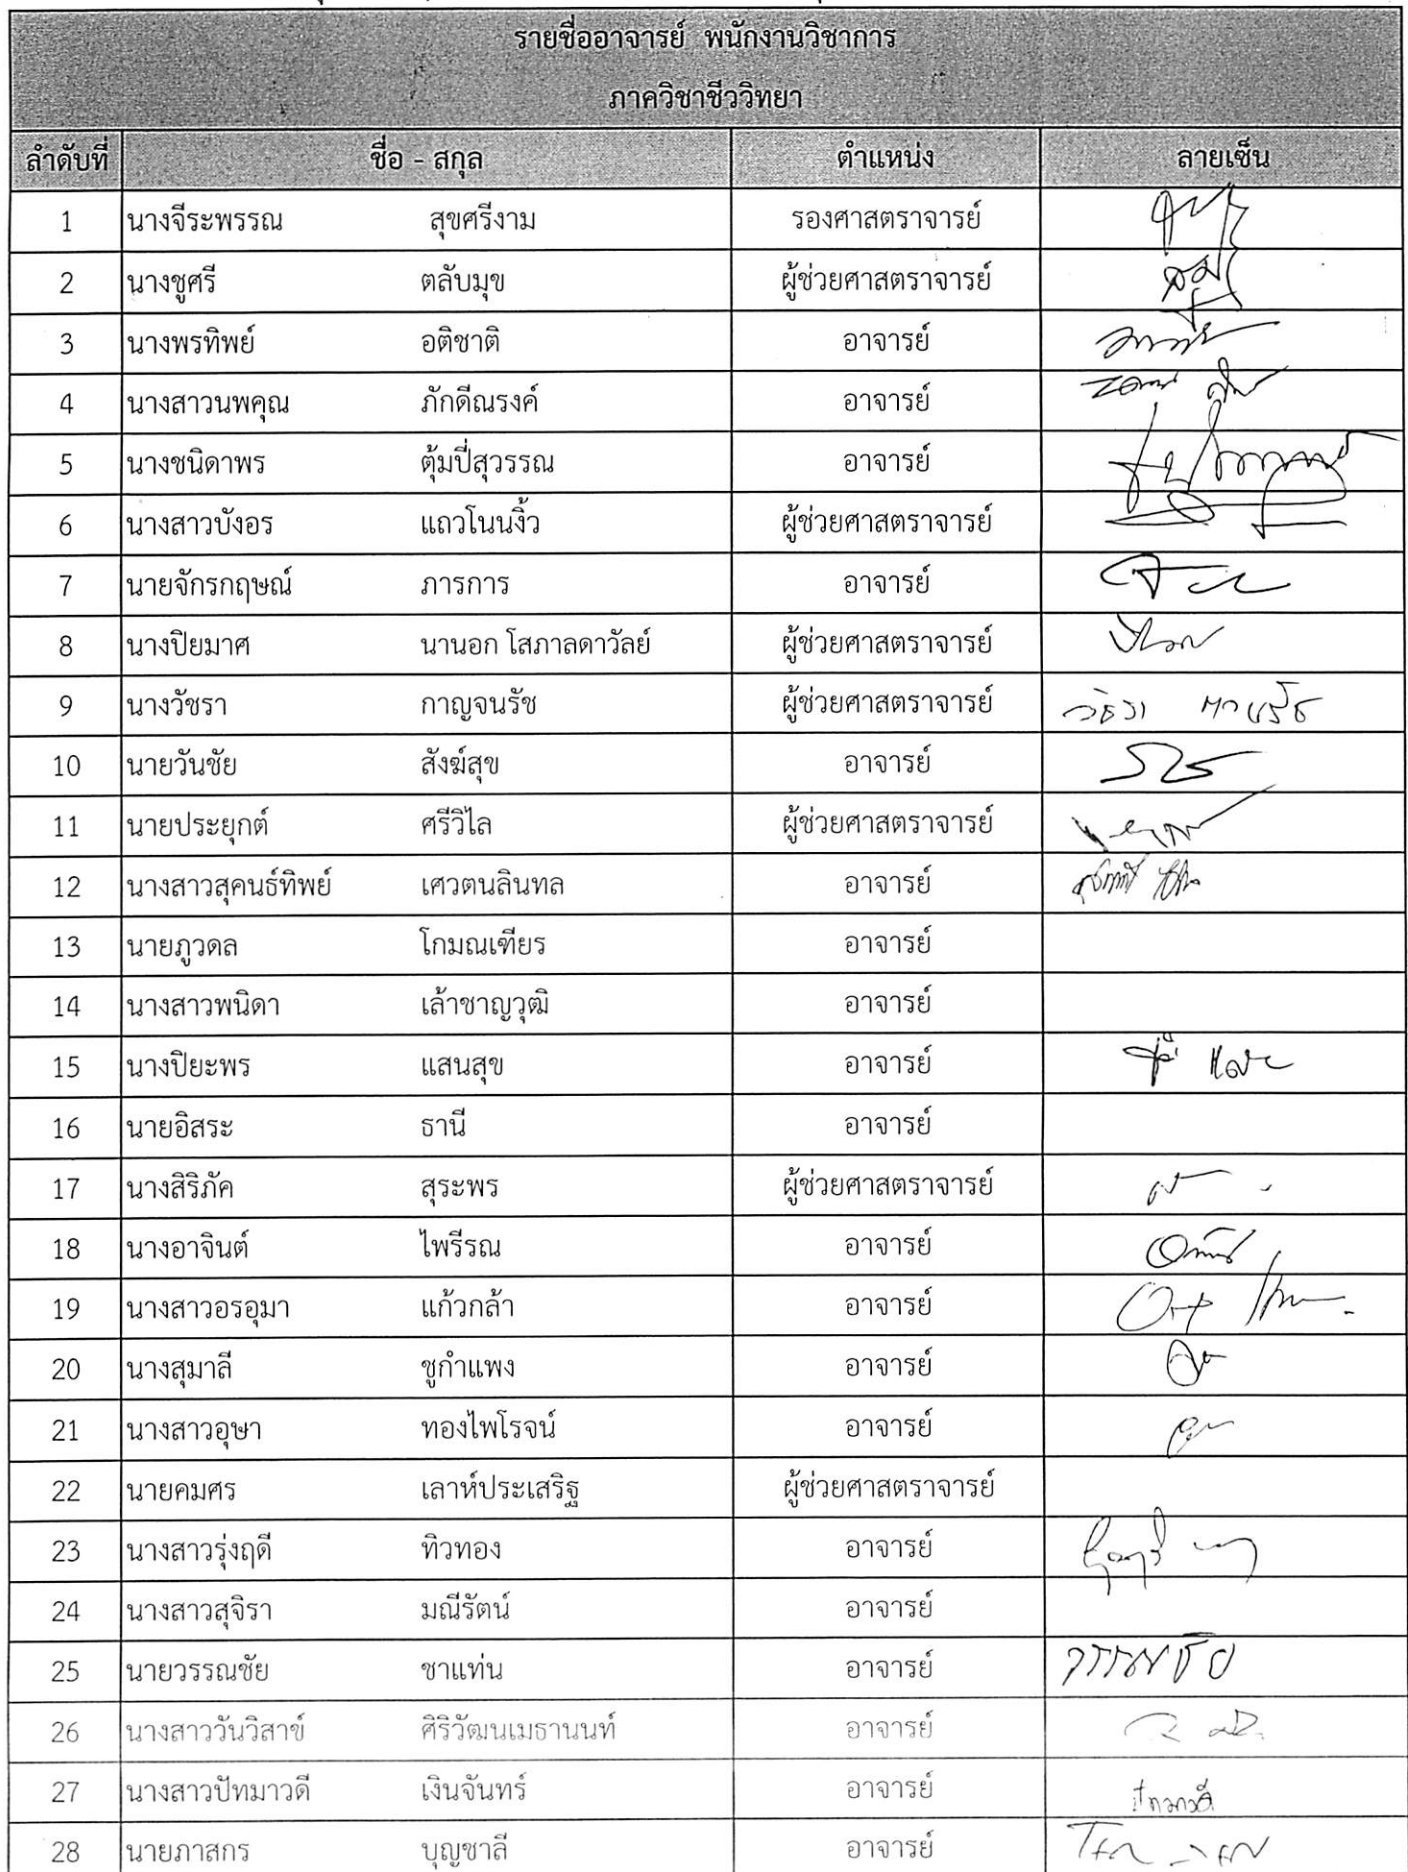 รายชื่ออาจารย์ พนักงานวิชาการ
ภาควิชาชีววิทยา
ลำดับที่ ชื่อ - สกุล ตำแหน่ง ลายเซ็น
1 นางจีระพรรณ สุขศรีงาม รองศาสตราจารย์
2 นางชูศรี ตลับมุข ผู้ช่วยศาสตราจารย์
3 นางพรทิพย์ อติชาติ อาจารย์
4 นางสาวนพคุณ ภักดีณรงค์ อาจารย์
5 นางชนิดาพร ตุ้มปี่สุวรรณ อาจารย์
6 นางสาวบังอร แถวโนนงิ้ว ผู้ช่วยศาสตราจารย์
7 นายจักรกฤษณ์ ภารการ อาจารย์
8 นางปิยมาศ นานอก โสภาลดาวัลย์ ผู้ช่วยศาสตราจารย์
9 นางวัชรา กาญจนรัช ผู้ช่วยศาสตราจารย์
10 นายวันชัย สังฆ์สุข อาจารย์
11 นายประยุกต์ ศรีวิไล ผู้ช่วยศาสตราจารย์
12 นางสาวสุคนธ์ทิพย์ เศวตนลินทล อาจารย์
13 นายภูวดล โกมณเฑียร อาจารย์
14 นางสาวพนิดา เล้าชาญวุฒิ อาจารย์
15 นางปิยะพร แสนสุข อาจารย์
16 นายอิสระ ธานี อาจารย์
17 นางสิริภัค สุระพร ผู้ช่วยศาสตราจารย์
18 นางอาจินต์ ไพรีรณ อาจารย์
19 นางสาวอรอุมา แก้วกล้า อาจารย์
20 นางสุมาลี ชูกำแพง อาจารย์
21 นางสาวอุษา ทองไพโรจน์ อาจารย์
22 นายคมศร เลาห์ประเสริฐ ผู้ช่วยศาสตราจารย์
23 นางสาวรุ่งฤดี ทิวทอง อาจารย์
24 นางสาวสุจิรา มณีรัตน์ อาจารย์
25 นายวรรณชัย ชาแท่น อาจารย์ วรรณชัย
26 นางสาววันวิสาข์ ศิริวัฒนเมธานนท์ อาจารย์
27 นางสาวปัทมาวดี เงินจันทร์ อาจารย์ ปัทมาวดี
28 นายภาสกร บุญชาลี อาจารย์